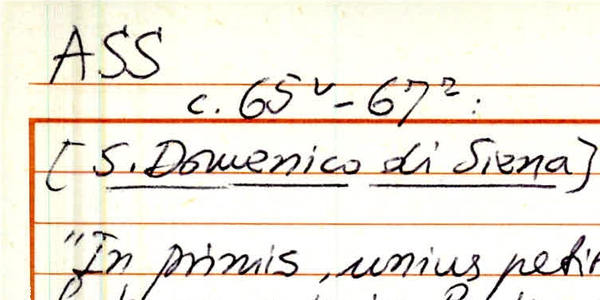 ASS
c. 65v - 67r:
[S. Domenico di Siena]
"In primis, unius petit